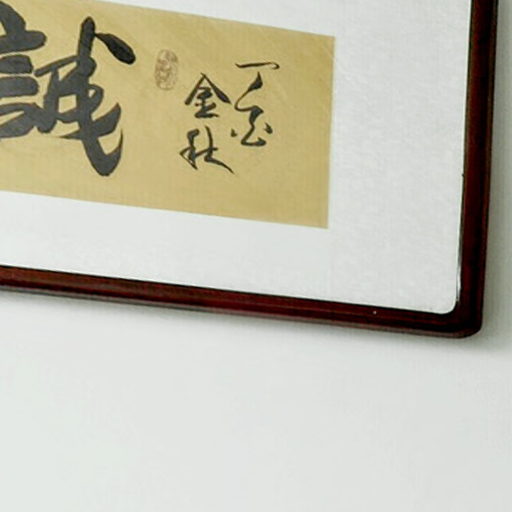 丁亥
金秋
誠